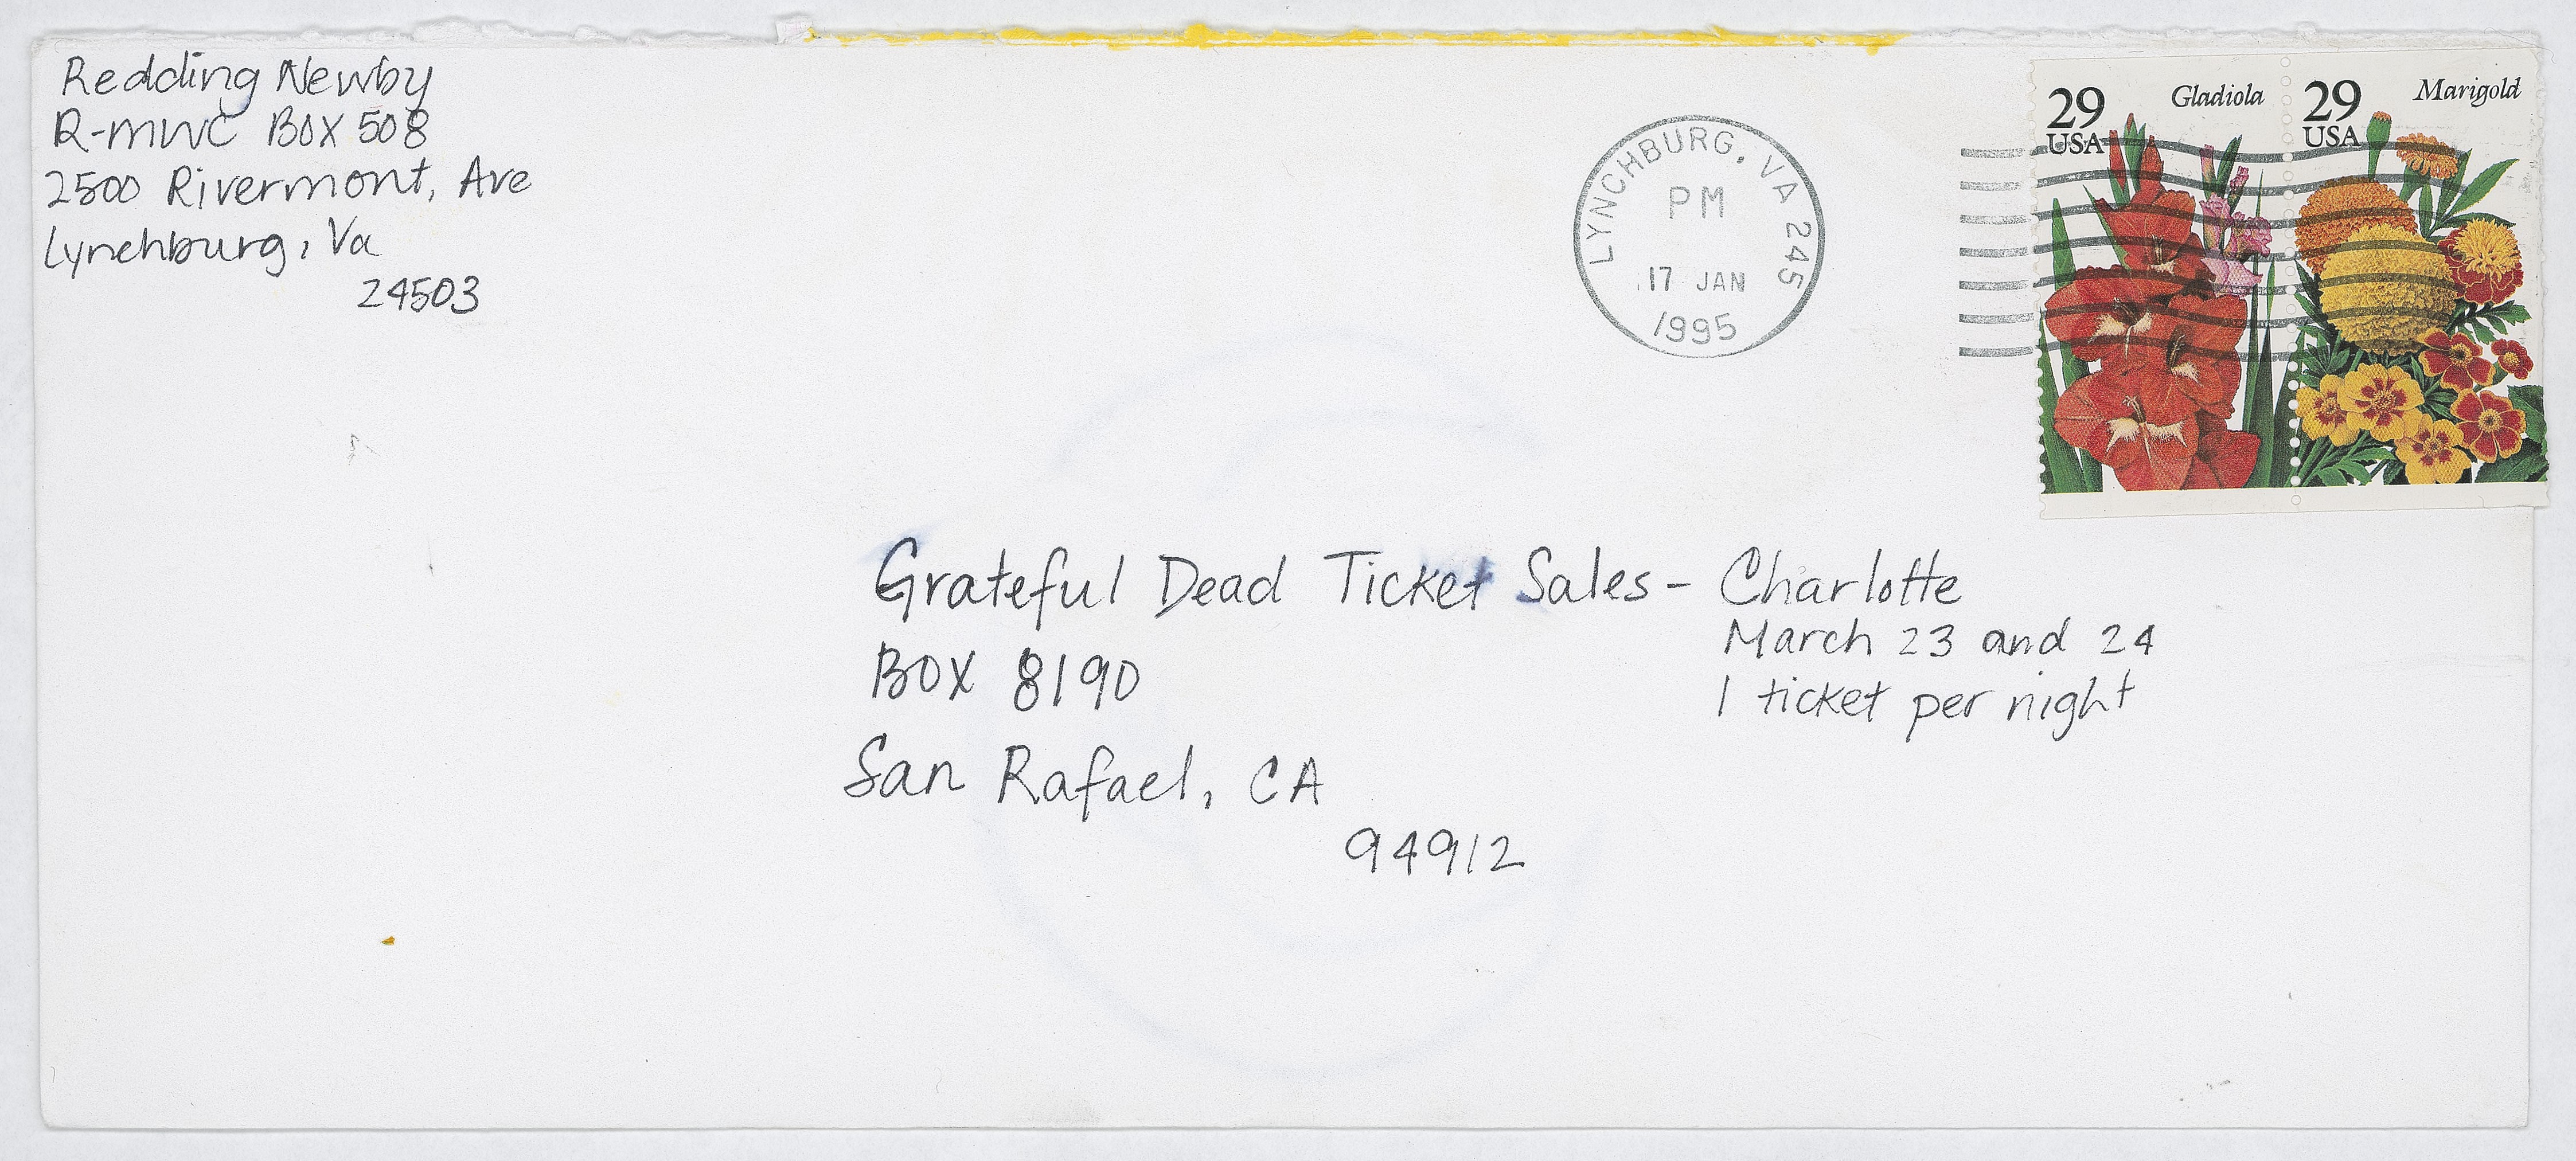 Redding Newby
R-MWC BOX 508
2500 Rivermont, Ave
Lynchburg, Va
24503
LYNCHBURG, VA 245
PM
17 JAN
1995
29
USA
Gladiola
29
USA
Marigold
Grateful Dead Ticket Sales - Charlotte
March 23 and 24
1 ticket per night
BOX 8190
San Rafael, CA
94912